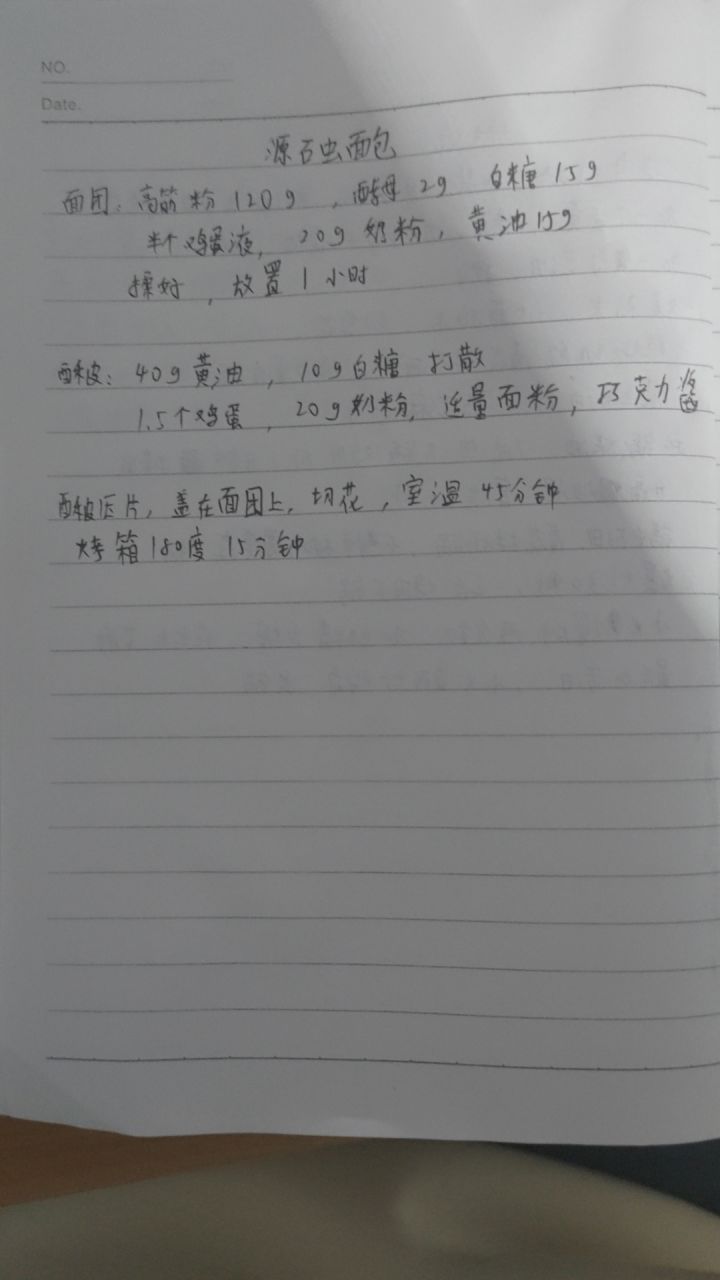 NO.
Date.
源石虫面包
面团：高筋粉120g，酵母2g 白糖15g
半个鸡蛋液，20g奶粉，黄油15g
揉好，放置1小时
酥皮：40g黄油，10g白糖 打散
1.5个鸡蛋，20g奶粉，适量面粉，巧克力酱
酥皮压片，盖在面团上，切花，室温45分钟
烤箱180度15分钟